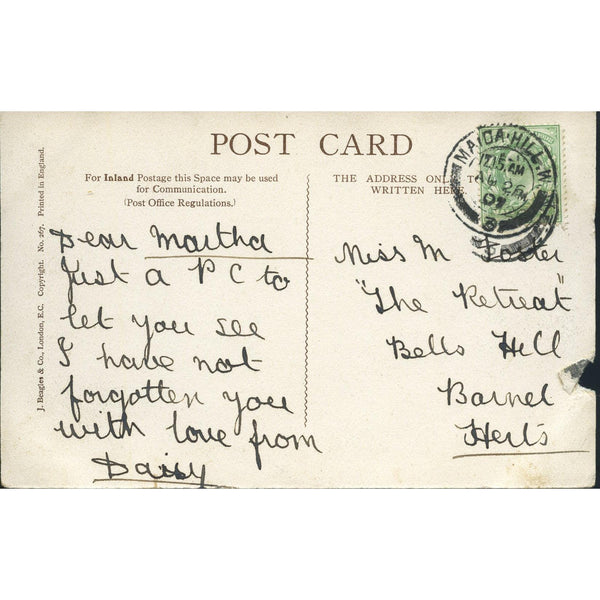 POST CARD
For Inland Postage this Space may be used
for Communication.
(Post Office Regulations.)
THE ADDRESS ONLY TO
WRITTEN HERE.
MAIDA·HILL·W.
12.15AM
26
07
Dear Martha
Just a P C to
let you see
I have not
forgotten you
with love from
Daisy
Miss M Foster
"The Retreat"
Bells Hill
Barnet
Herts
J. Beagles & Co., London, E.C. Copyright. No. 267. Printed in England.